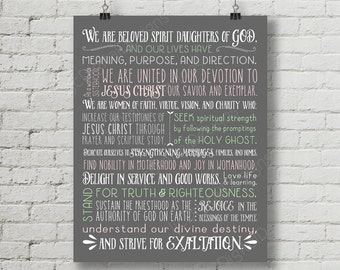 WE ARE BELOVED SPIRIT DAUGHTERS OF GOD,
AND OUR LIVES HAVE
MEANING, PURPOSE, AND DIRECTION.
WE ARE UNITED IN OUR DEVOTION TO
JESUS CHRIST OUR SAVIOR AND EXEMPLAR.
WE ARE WOMEN OF FAITH, VIRTUE, VISION, AND CHARITY WHO:
INCREASE OUR TESTIMONIES OF
JESUS CHRIST THROUGH
PRAYER AND SCRIPTURE STUDY
SEEK spiritual strength
by following the promptings
of the HOLY GHOST.
DEDICATE OURSELVES TO STRENGTHENING MARRIAGES, FAMILIES, AND HOMES.
FIND NOBILITY IN MOTHERHOOD AND JOY IN WOMANHOOD.
DELIGHT IN SERVICE AND GOOD WORKS.
Love life
& learning.
STAND FOR TRUTH & RIGHTEOUSNESS.
SUSTAIN THE PRIESTHOOD AS THE
AUTHORITY OF GOD ON EARTH.
REJOICE IN THE
BLESSINGS OF THE TEMPLE
understand our divine destiny,
AND STRIVE FOR EXALTATION.